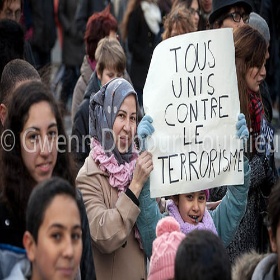 TOUS
UNIS
CONTRE
LE
TERRORISME
© Gwenn Dubourthoumieu